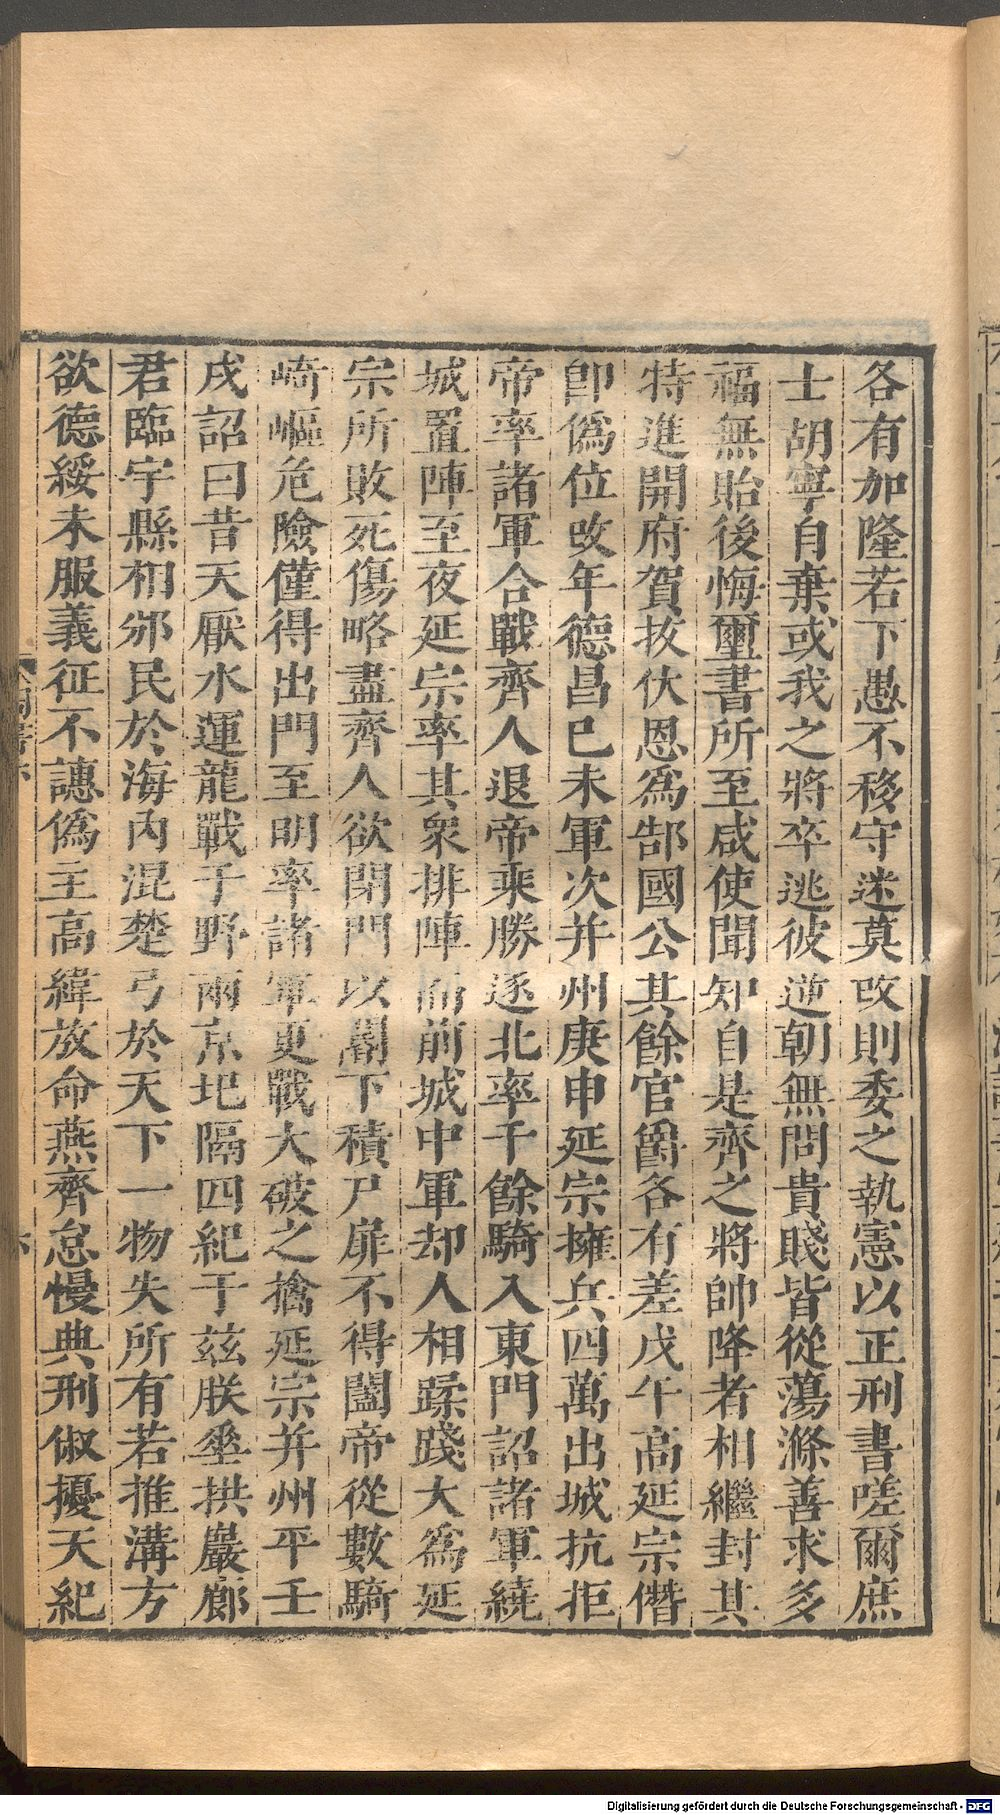 各有加隆若下愚不移守迷莫改則委之執憲以正刑書嗟爾庶
士胡寧自棄或我之將卒逃彼逆朝無問貴賤皆從蕩滌善求多
福無貽後悔璽書所至咸使聞知自是齊之將帥降者相繼封其
特進開府賀拔伏恩爲郜國公其餘官爵各有差戊午高延宗僭
卽僞位改年德昌巳未軍次并州庚申延宗擁兵四萬出城抗拒
帝率諸軍合戰齊人退帝乘勝逐北率千餘騎入東門詔諸軍繞
城置陣至夜延宗率其衆排陣而前城中軍却人相蹂踐大爲延
宗所敗死傷略盡齊人欲閉門以閽下積尸扉不得闔帝從數騎
崎嶇危險僅得出門至明率諸軍更戰大破之擒延宗并州平壬
戌詔曰昔天厭水運龍戰于野兩京圮隔四紀于茲朕垂拱巖廊
君臨宇縣相邠民於海內混楚弓於天下一物失所有若推溝方
欲德綏未服義征不譓僞主高緯放命燕齊怠慢典刑俶擾天紀
Digitalisierung gefördert durch die Deutsche Forschungsgemeinschaft - DFG